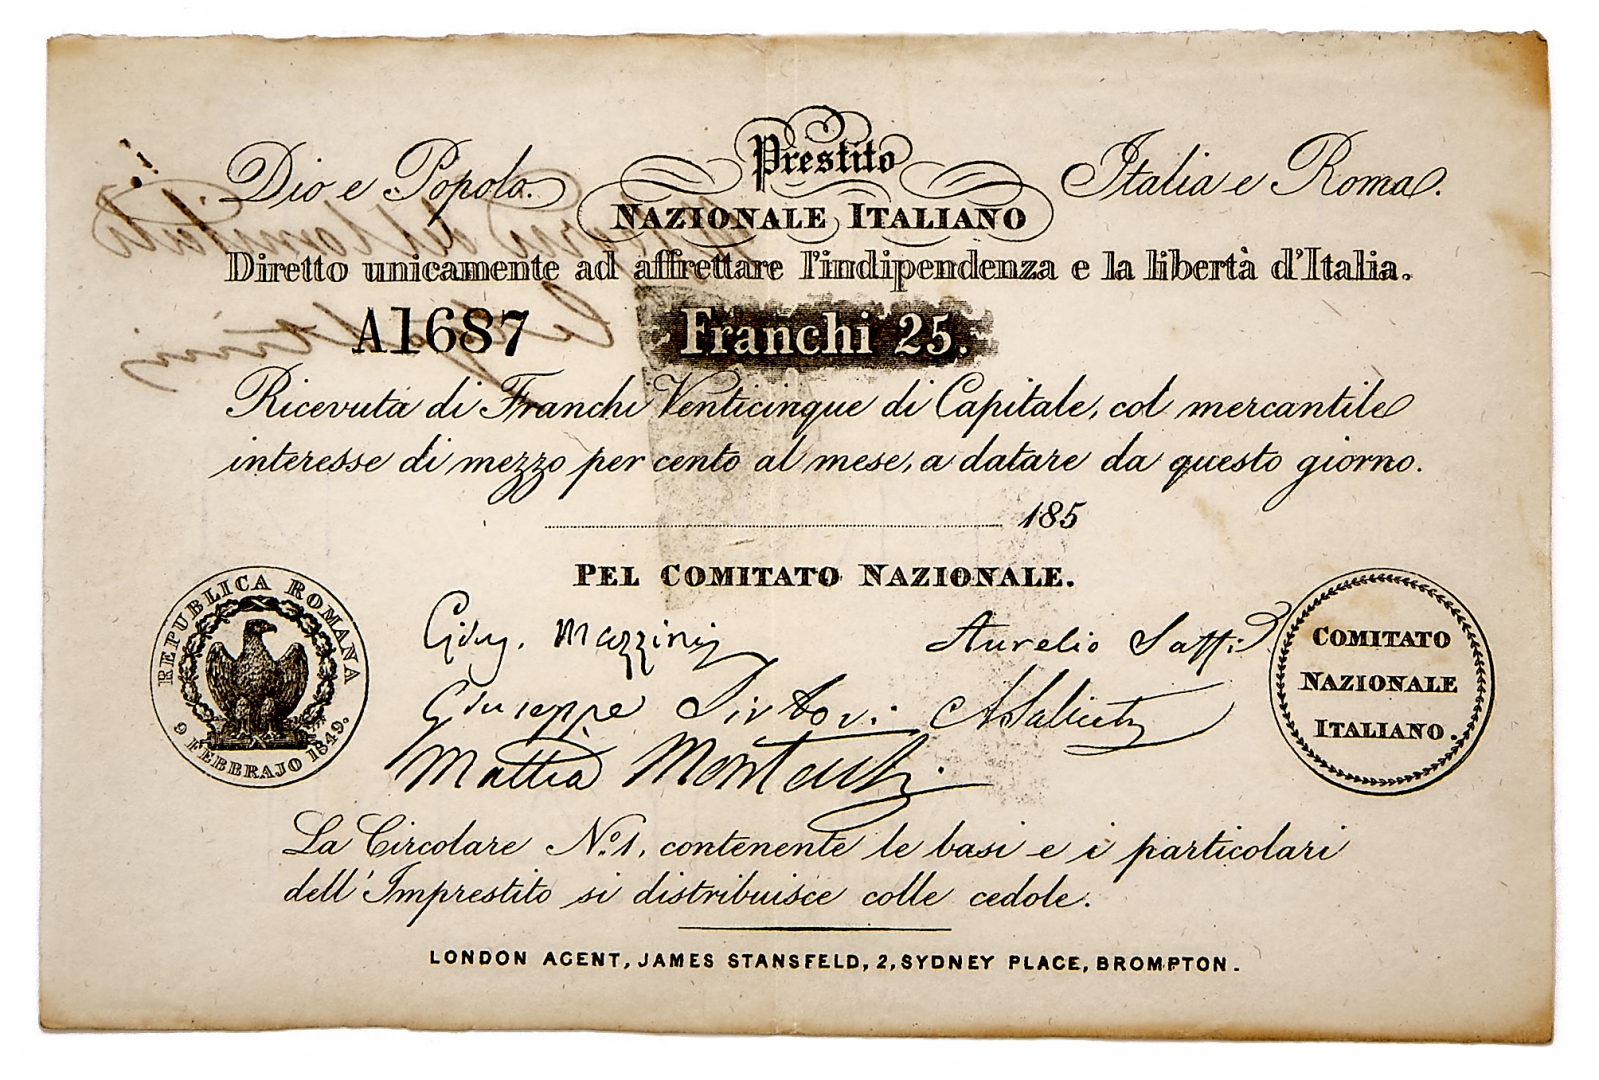 Dio e Popolo.
Prestito
Italia e Roma.
NAZIONALE ITALIANO
Diretto unicamente ad affrettare l'indipendenza e la libertà d'Italia.
A1687
Franchi 25.
Ricevuta di Franchi Venticinque di Capitale, col mercantile
interesse di mezzo per cento al mese, a datare da questo giorno.
185
PEL COMITATO NAZIONALE.
Giuse. Mazzini
Aurelio Saffi
Giuseppe Sirtori
ASaliceti
Mattia Montecchi
REPUBLICA ROMANA
9 FEBBERAJO 1849.
COMITATO
NAZIONALE
ITALIANO.
La Circolare No. 1, contenente le basi e i particolari
dell'Imprestito si distribuisce colle cedole.
LONDON AGENT, JAMES STANSFELD, 2, SYDNEY PLACE, BROMPTON.